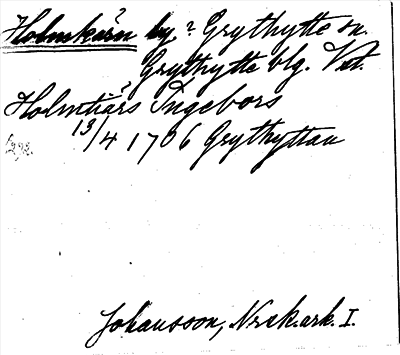 Holmkärn by? Grythytte sn.
Grythytte blg. Vtl.
Holmtiärs Ingebors
13/4 1706 Grythyttan
Johansson, Nrak.ark. I.